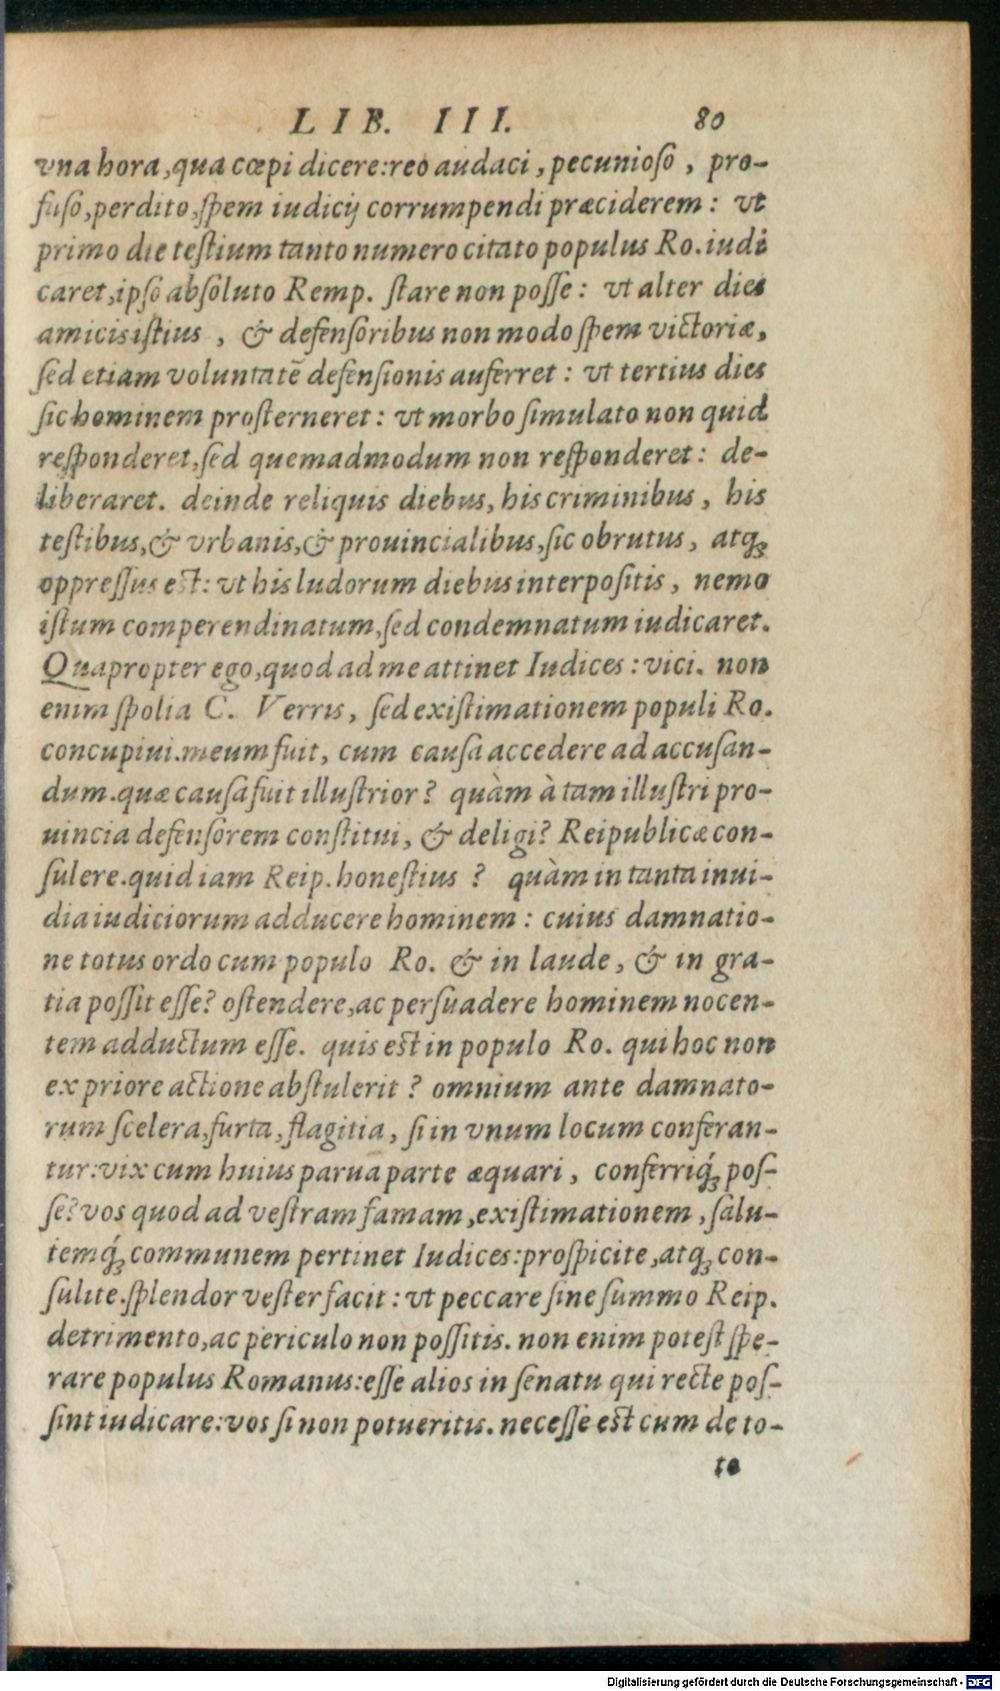 LIB. III. 80
vna hora, qua cœpi dicere: reo audaci, pecunioso, pro-
fuso, perdito, spem iudicij corrumpendi præciderem: vt
primo die testium tanto numero citato populus Ro. iudi
caret, ipso absoluto Remp. stare non posse: vt alter dies
amicis istius, & defensoribus non modo spem victoriæ,
sed etiam voluntatē defensionis auferret: vt tertius dies
sic hominem prosterneret: vt morbo simulato non quid
responderet, sed quemadmodum non responderet: de-
liberaret. deinde reliquis diebus, his criminibus, his
testibus, & vrbanis, & prouincialibus, sic obrutus, atq;
oppressus est: vt his ludorum diebus interpositis, nemo
istum comperendinatum, sed condemnatum iudicaret.
Quapropter ego, quod ad me attinet Iudices: vici. non
enim spolia C. Verris, sed existimationem populi Ro.
concupiui. meum fuit, cum causa accedere ad accusan-
dum. quæ causa fuit illustrior? quàm à tam illustri pro-
uincia defensorem constitui, & deligi? Reipublicæ con-
sulere. quid iam Reip. honestius? quàm in tanta inui-
dia iudiciorum adducere hominem: cuius damnatio-
ne totus ordo cum populo Ro. & in laude, & in gra-
tia possit esse? ostendere, ac persuadere hominem nocen-
tem adductum esse. quis est in populo Ro. qui hoc non
ex priore actione abstulerit? omnium ante damnato-
rum scelera, furta, flagitia, si in vnum locum conferan-
tur: vix cum huius parua parte æquari, conferriq́; pos-
se? vos quod ad vestram famam, existimationem, salu-
temq́; communem pertinet Iudices: prospicite, atq; con-
sulite. splendor vester facit: vt peccare sine summo Reip.
detrimento, ac periculo non possitis. non enim potest spe-
rare populus Romanus: esse alios in senatu qui recte pos-
sint iudicare: vos si non potueritis. necesse est cum de to-
to
Digitalisierung gefördert durch die Deutsche Forschungsgemeinschaft - DFG